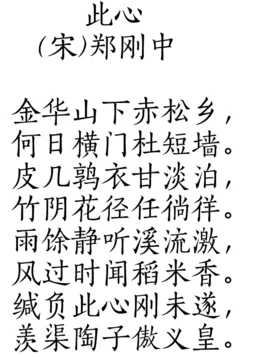 此心
(宋)郑刚中
金华山下赤松乡，
何日横门杜短墙。
皮几鹑衣甘淡泊，
竹阴花径任徜徉。
雨馀静听溪流激，
风过时闻稻米香。
缄负此心刚未遂，
羡渠陶子傲义皇。